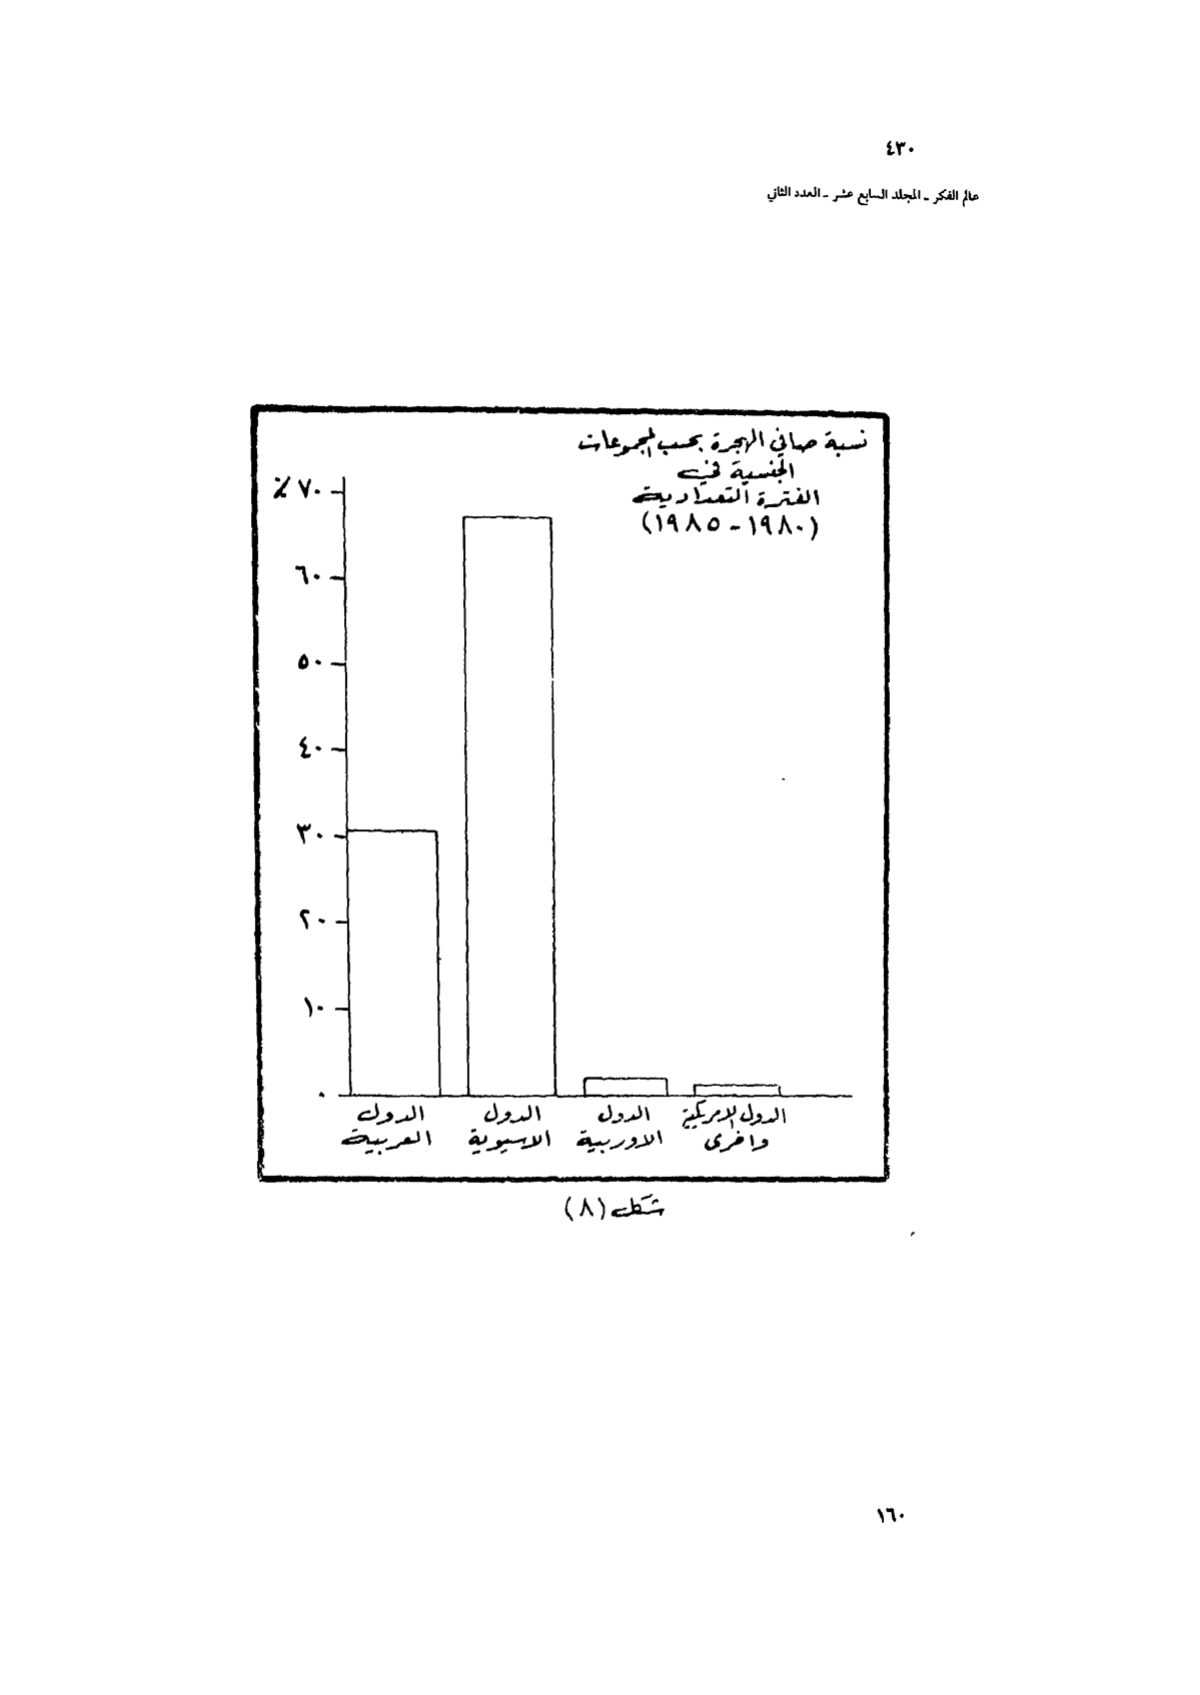 ٤٣٠
عالم الفكر ـ المجلد السابع عشر ـ العدد الثاني
نسبة صافي الهجرة بحسب المجموعات
الجنسية في
الفترة التعدادية
(١٩٨٠ - ١٩٨٥)
٪ ٧٠
٦٠
٥٠
٤٠
٣٠
٢٠
١٠
٠
الدول العربية
الدول الاسيوية
الدول الاوربية
الدول الامريكية واخرى
شكل (٨)
١٦٠